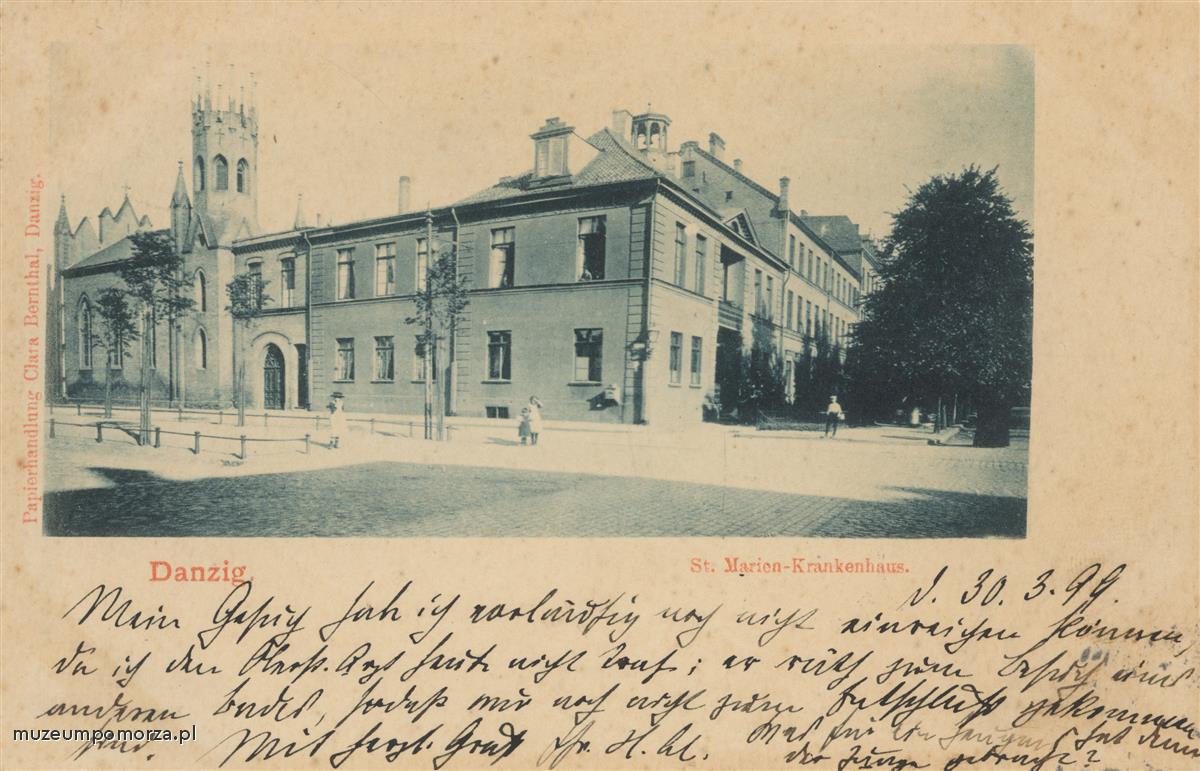 Papierhandlung Clara Bernthal, Danzig.
Danzig.
St. Marien-Krankenhaus.
d. 30. 3. 99.
Mein Gesuch hab ich vorläufig noch nicht einreichen können,
da ich den Oberst. Arzt heute nicht traf; er räth zum Besuch eines
anderen Bades, sodaß wir noch nicht zum Entschluß gekommen
sind. Mit herzl. Gruß Ihr
Was für ein Zeugniß hat denn
der Junge gebracht?
muzeumpomorza.pl